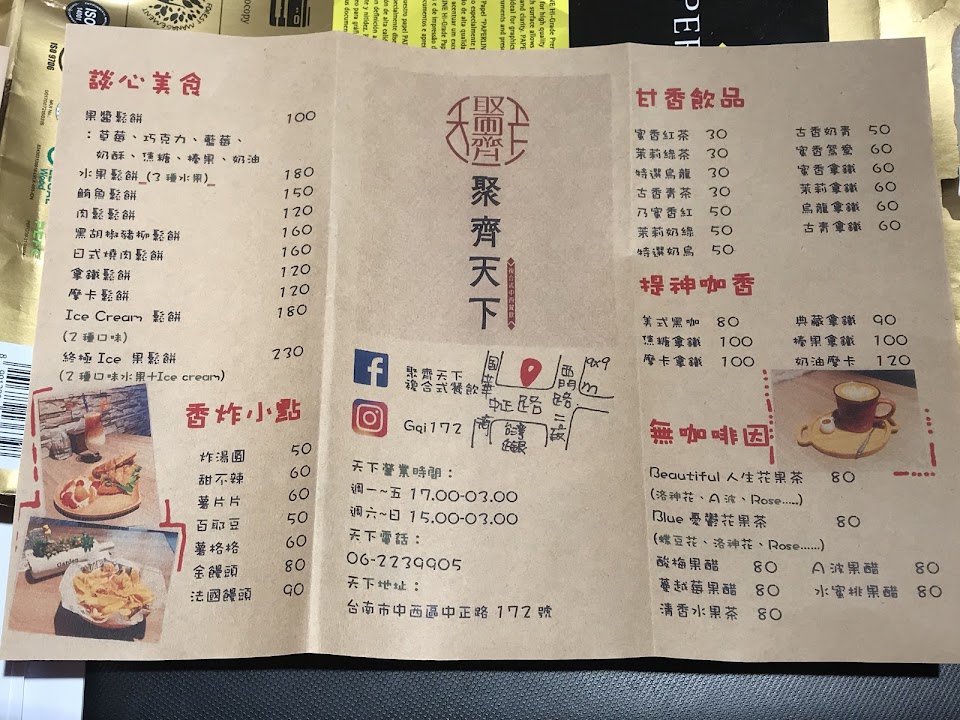 談心美食
果醬鬆餅 100
：草莓、巧克力、藍莓、
奶酥、焦糖、榛果、奶油
水果鬆餅 (3種水果) 180
鮪魚鬆餅 150
肉鬆鬆餅 120
黑胡椒豬柳鬆餅 160
日式燒肉鬆餅 160
拿鐵鬆餅 120
摩卡鬆餅 120
Ice Cream 鬆餅 180
(2種口味)
終極Ice 果鬆餅 230
(2種口味水果+Ice cream)
香炸小點
炸湯圓 50
甜不辣 60
薯片片 60
百耶豆 50
薯格格 60
金饅頭 80
法國饅頭 90
聚齊天下
聚齊天下
複合式中西餐飲
聚齊天下
複合式餐飲
Gqi172
國華街
中正路
西門路二段
台灣銀
天下營業時間：
週一~五 17.00-03.00
週六~日 15.00-03.00
天下電話：
06-2239905
天下地址：
台南市中西區中正路 172 號
甘香飲品
蜜香紅茶 30
茉莉綠茶 30
特選烏龍 30
古香青茶 30
乃蜜香紅 50
茉莉奶綠 50
特選奶烏 50
古香奶青 50
蜜香鴛鴦 60
蜜香拿鐵 60
茉莉拿鐵 60
烏龍拿鐵 60
古青拿鐵 60
提神咖香
美式黑咖 80
焦糖拿鐵 100
摩卡拿鐵 100
典藏拿鐵 90
榛果拿鐵 100
奶油摩卡 120
無咖啡因
Beautiful 人生花果茶 80
(洛神花、A波、Rose.....)
Blue 憂鬱花果茶 80
(蝶豆花、洛神花、Rose......)
酸梅果醋 80
蔓越莓果醋 80
清香水果茶 80
A波果醋 80
水蜜桃果醋 80